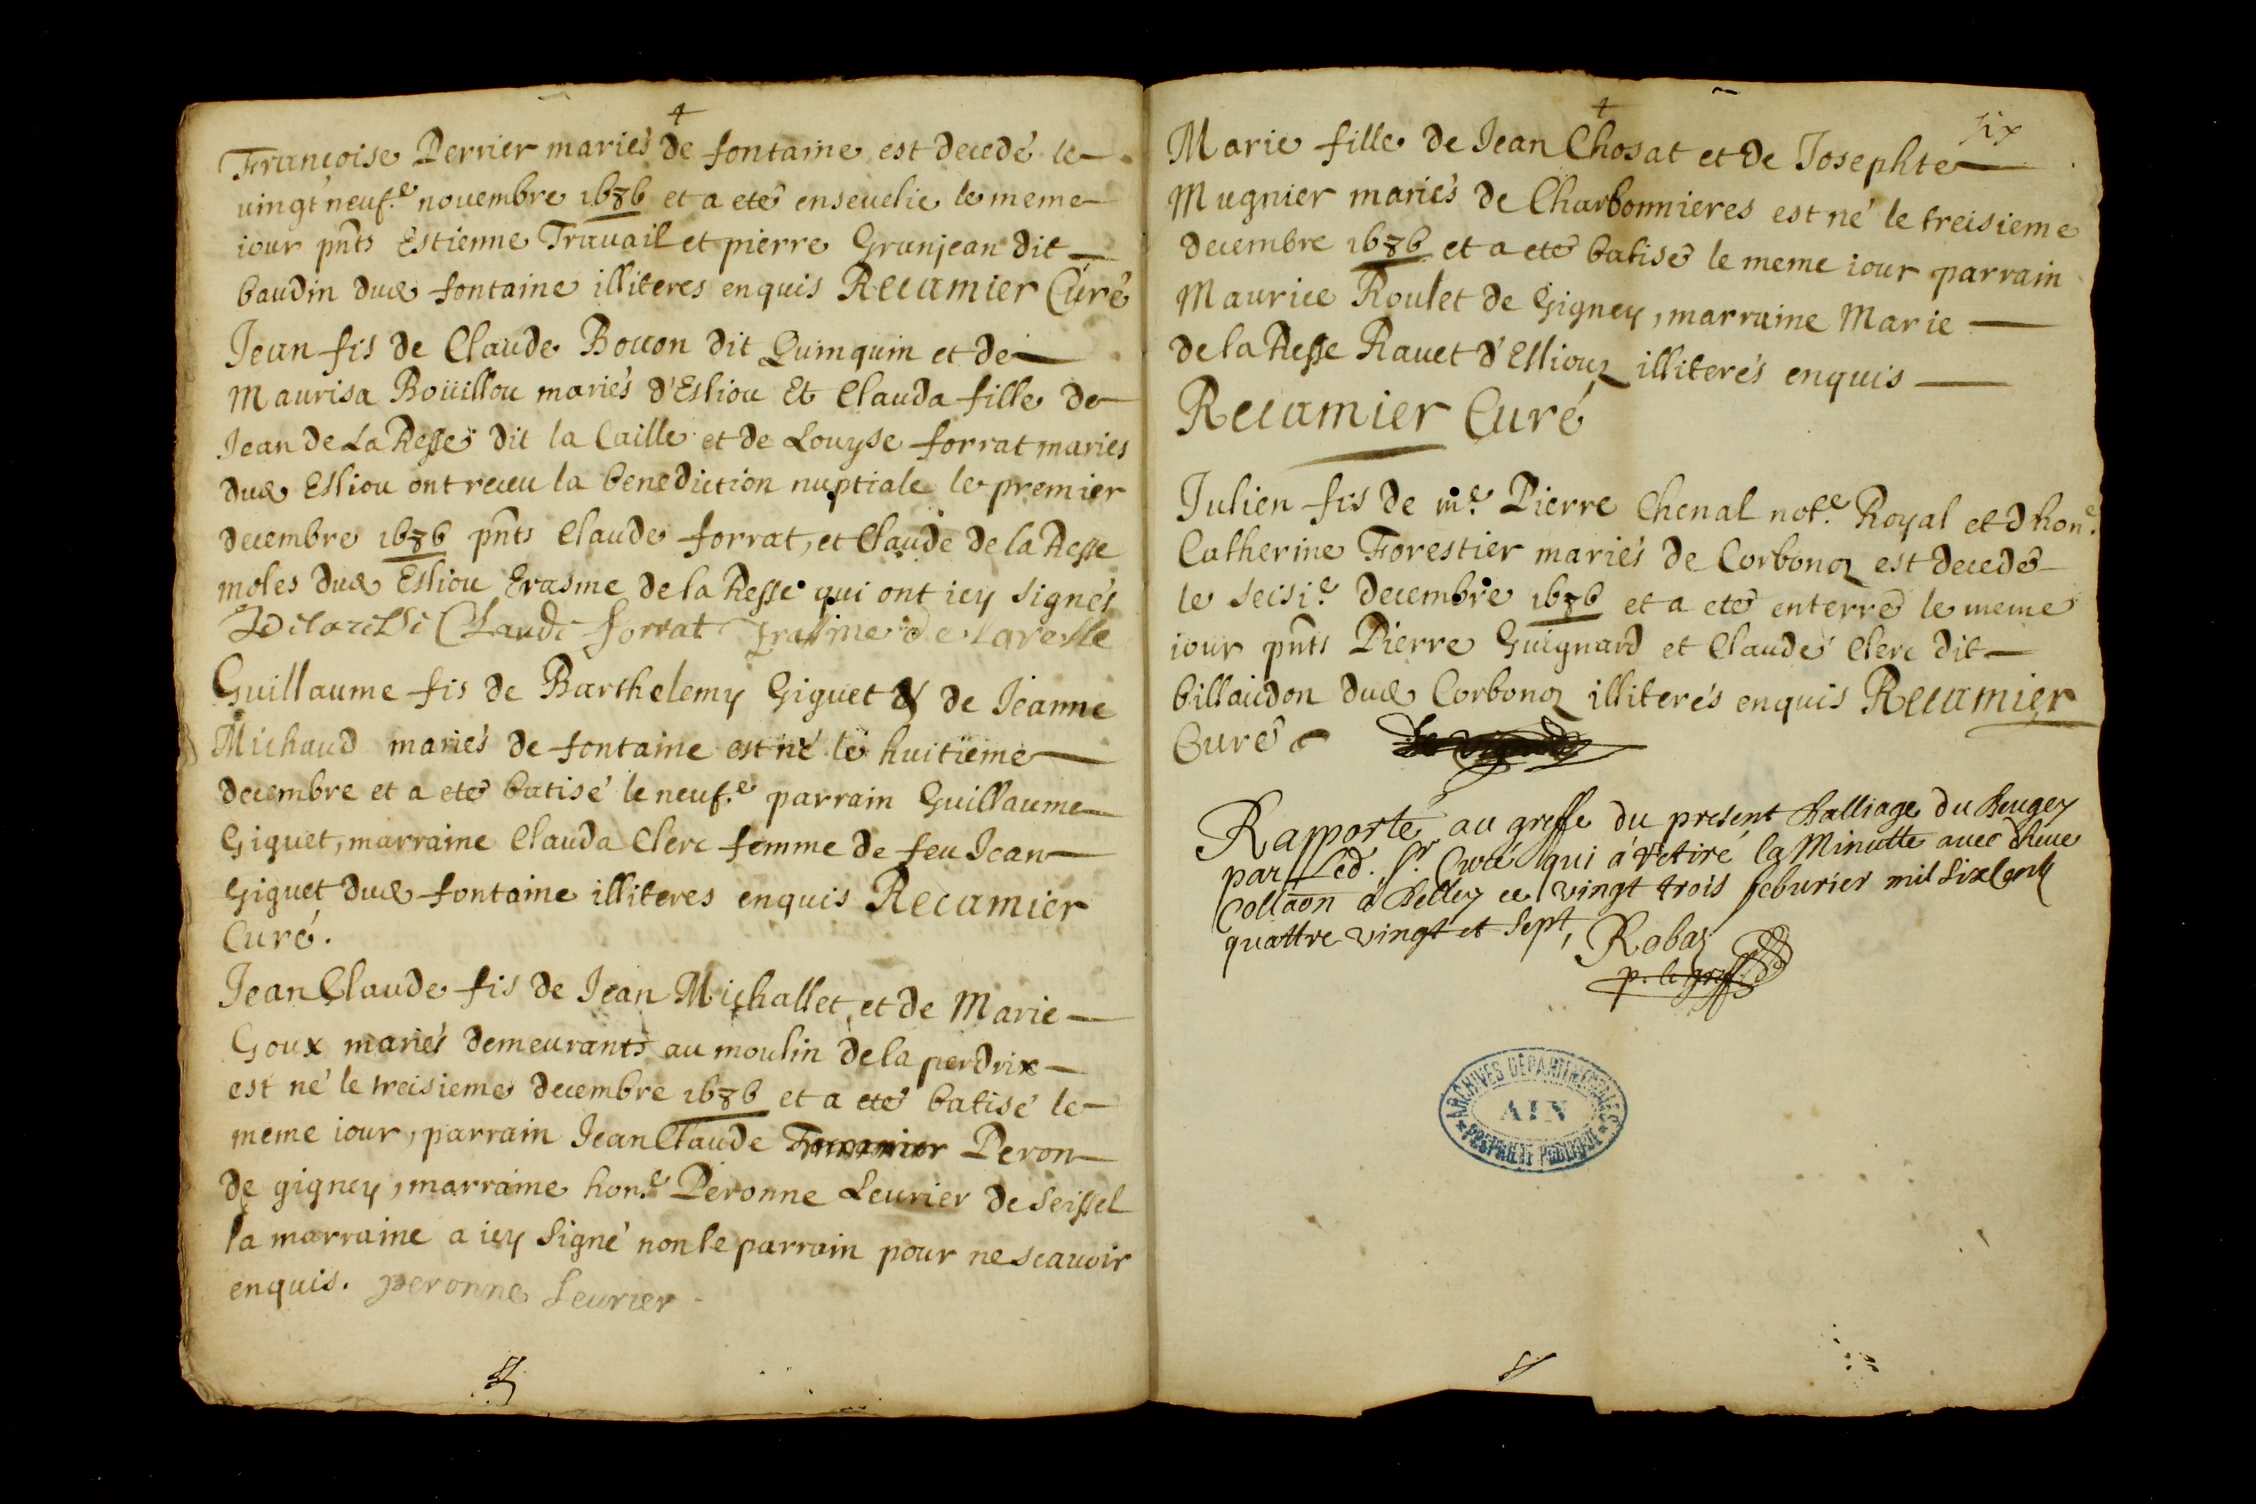 Françoise Perrier mariés de fontaine est decedé le
vingt neuf.e novembre 1686 et a eté ensevelie le meme
iour pnts Estienne Travail et pierre Granjean dit
baudin dud fontaine illiteres enquis Recamier Curé
Jean fis de Claude Bovon dit Quinquin et de
Maurisa Boüillou mariés d'Esliou Et Clauda fille de
Jean de La Resse dit la Caille et de Louyse forrat mariés
dud Esliou ont receu la benediction nuptiale le premier
decembre 1686 pnts Claude forrat, et Claude de la Resse
moles dud Esliou Erasme de la Resse qui ont icy signés
Claude forrat Erasme de laresse
Guillaume fis de Barthelemy Giguet & de Jeanne
Michaud mariés de fontaine est né le huitieme
decembre et a eté batisé le neuf.e parrain Guillaume
Giguet, marraine Clauda Clerc femme de feu Jean
Giguet dud fontaine illiteres enquis Recamier
Curé.
Jean Claude fis de Jean Michallet, et de Marie
Goux mariés demeurants au moulin de la perdrix
est né le treisieme decembre 1686 et a eté batisé le
meme iour, parrain Jean Claude Peron
de gigney, marraine hon.e Peronne Levrier de Seissel
la marraine a icy signé non le parrain pour ne scavoir
enquis. peronne Levrier
six
Marie fille de Jean Chosat et de Josephte
Mugnier mariés de Charbonnieres est né le treisieme
decembre 1686 et a eté batisé le meme iour parrain
Maurice Roulet de Gigney, marraine Marie
de la Resse Ravet d'Esliouz illiterés enquis
Recamier Curé
Julien fis de me. Pierre Chenal not.e Royal et d hon.e
Catherine Forestier mariés de Corbonoz est decedé
le seisi.e decembre 1686 et a eté enterré le meme
iour pnts Pierre Guignard et Claude Clerc dit
billaudon dud Corbonoz illiterés enquis Recamier
Curé
Rapporté au greffe du present Balliage du Beugey
par Led. Sr. Curé qui à retiré la Minutte avec
Collaon à Belley ce vingt trois feburier mil six Cents
quattre vingt et sept, Robaz
p. le greff.
ARCHIVES DÉPARTEMENTALES
AIN
PROPRIÉTÉ PUBLIQUE